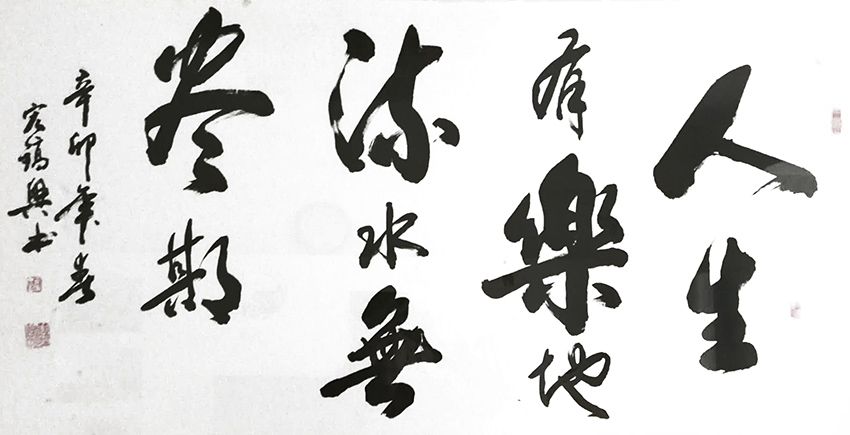 人生
有樂地
流水無
尽期
辛卯年春
宏錫興书